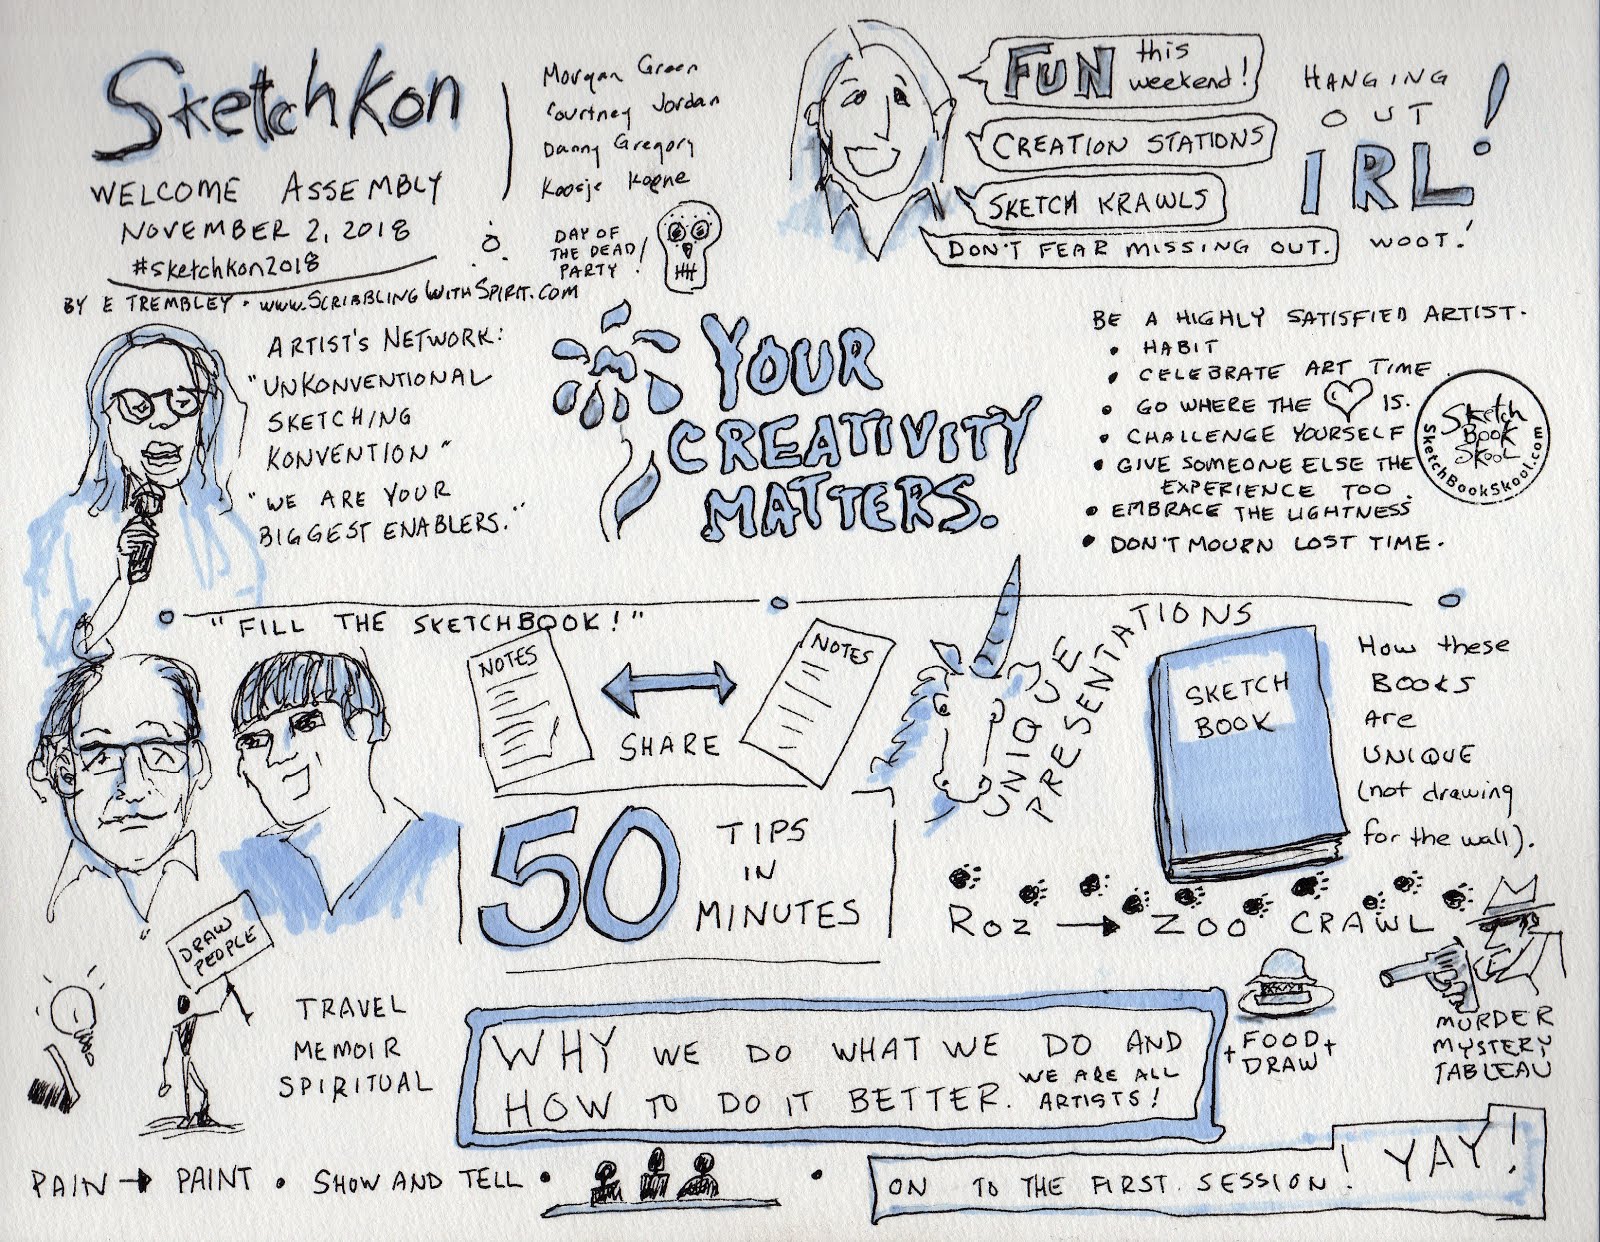 SketchKon
WELCOME ASSEMBLY
NOVEMBER 2, 2018
#sketchkon2018
BY E TREMBLEY • www.SCRIBBLINGWITHSPIRIT.com
Morgan Green
Courtney Jordan
Danny Gregory
Koosje Koene
DAY OF
THE DEAD
PARTY!
FUN this
weekend!
CREATION STATIONS
SKETCH KRAWLS
DON'T FEAR MISSING OUT.
HANGING
OUT
IRL!
WOOT!
ARTIST'S NETWORK:
"UNKONVENTIONAL
SKETCHING
KONVENTION"
"WE ARE YOUR
BIGGEST ENABLERS."
YOUR
CREATIVITY
MATTERS.
BE A HIGHLY SATISFIED ARTIST.
• HABIT
• CELEBRATE ART TIME.
• GO WHERE THE ♡ IS.
• CHALLENGE YOURSELF
• GIVE SOMEONE ELSE THE
EXPERIENCE TOO.
• EMBRACE THE LIGHTNESS
• DON'T MOURN LOST TIME.
Sketch
Book
Skool
SketchBookSkool.com
"FILL THE SKETCHBOOK!"
NOTES
NOTES
SHARE
UNIQUE
PRESENTATIONS
SKETCH
BOOK
How these
BOOKS
are
UNIQUE
(not drawing
for the wall).
50 TIPS
IN
MINUTES
ROZ → ZOO CRAWL
DRAW
PEOPLE
TRAVEL
MEMOIR
SPIRITUAL
WHY WE DO WHAT WE DO AND
HOW TO DO IT BETTER.
WE ARE ALL
ARTISTS!
+ FOOD +
DRAW
MURDER
MYSTERY
TABLEAU
PAIN → PAINT • SHOW AND TELL •
ON TO THE FIRST SESSION! YAY!